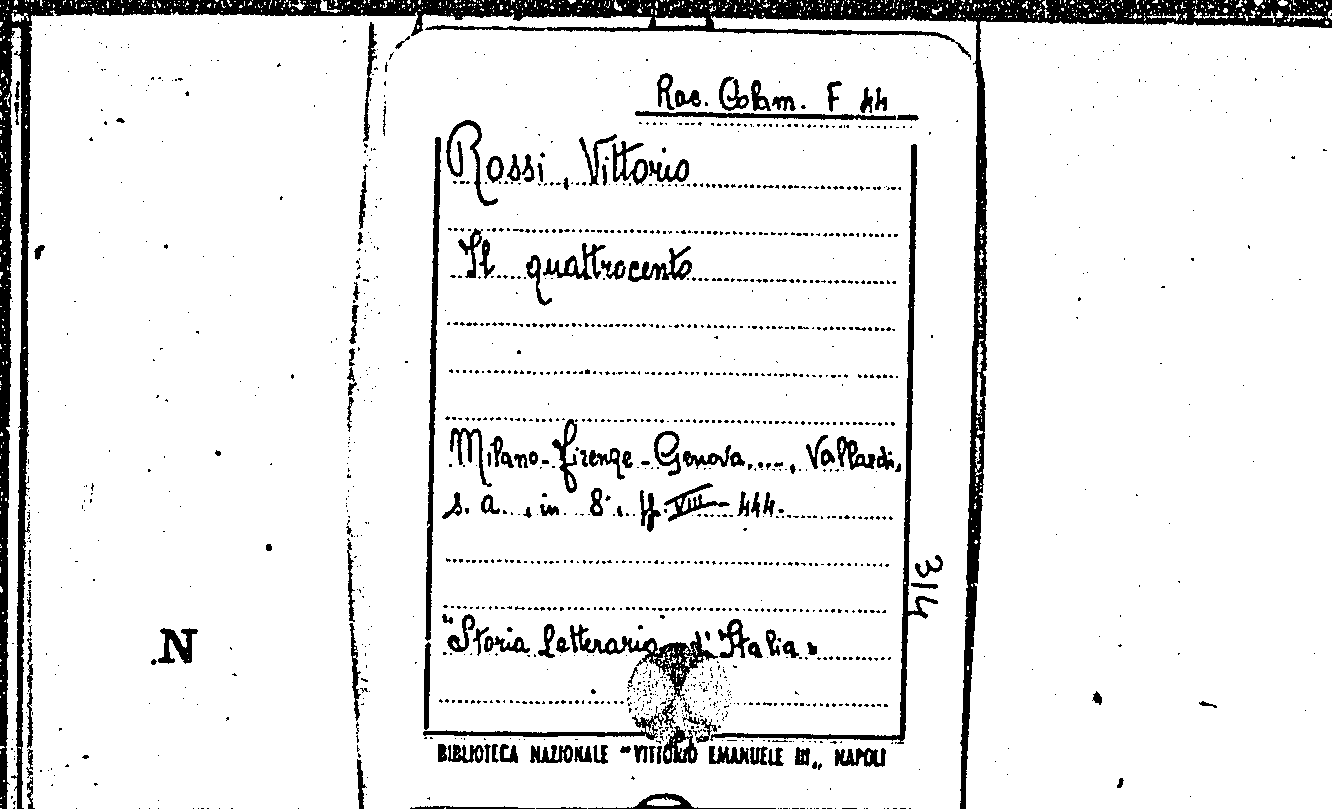 Rac. Colam. F 44
Rossi, Vittorio
Il quattrocento
Milano-Firenze-Genova...., Vallardi,
s. a., in 8°, pp. VIII-444.
3/4
"Storia letteraria d'Italia"
N
BIBLIOTECA NAZIONALE "VITTORIO EMANUELE III„ NAPOLI